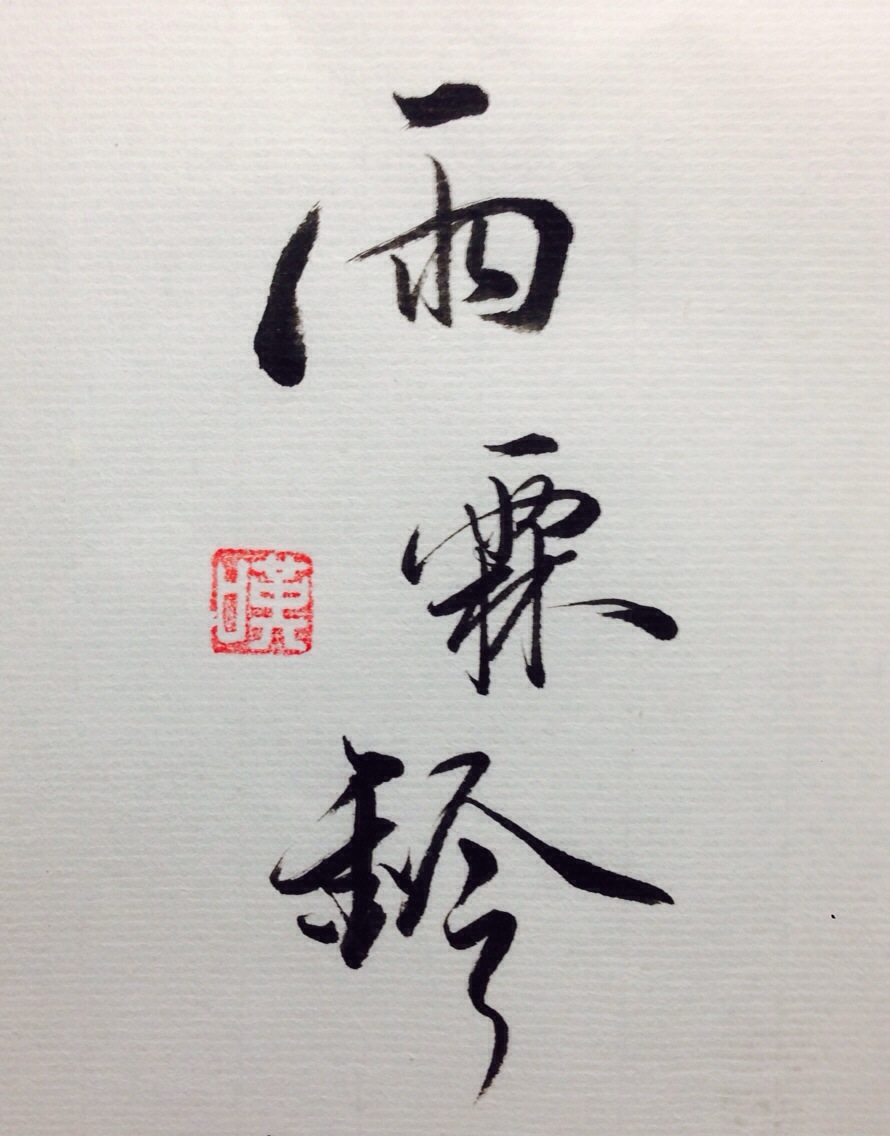 雨
霖
鈴